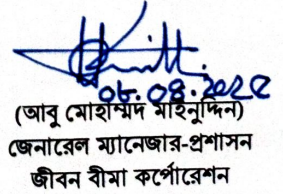 ০৮.০৪.২০২৫
(আবু মোহাম্মদ মাইনুদ্দিন)
জেনারেল ম্যানেজার-প্রশাসন
জীবন বীমা কর্পোরেশন